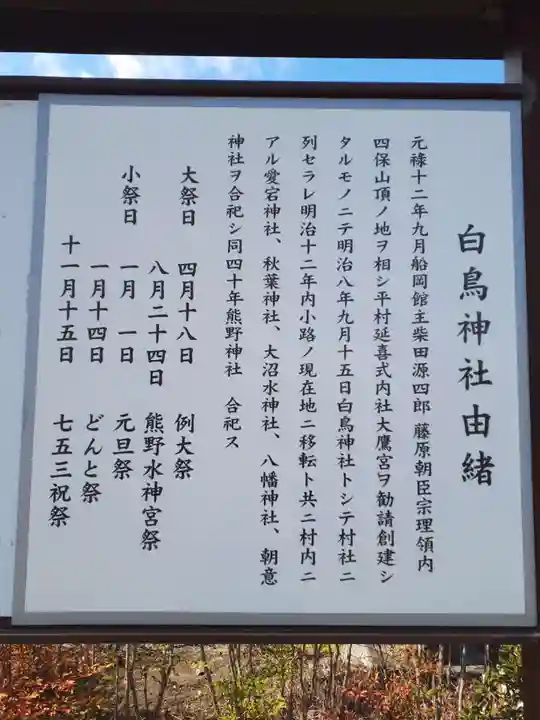 白鳥神社由緒
元禄十二年九月船岡館主柴田源四郎 藤原朝臣宗理領内
四保山頂ノ地ヲ相シ平村延喜式内社大鷹宮ヲ勧請創建シ
タルモノニテ明治八年九月十五日白鳥神社トシテ村社ニ
列セラレ明治十二年内小路ノ現在地ニ移転ト共ニ村内ニ
アル愛宕神社、秋葉神社、大沼水神社、八幡神社、朝意
神社ヲ合祀シ同四十年熊野神社 合祀ス
大祭日 四月十八日 例大祭
八月二十四日 熊野水神宮祭
小祭日 一月 一日 元旦祭
一月十四日 どんと祭
十一月十五日 七五三祝祭